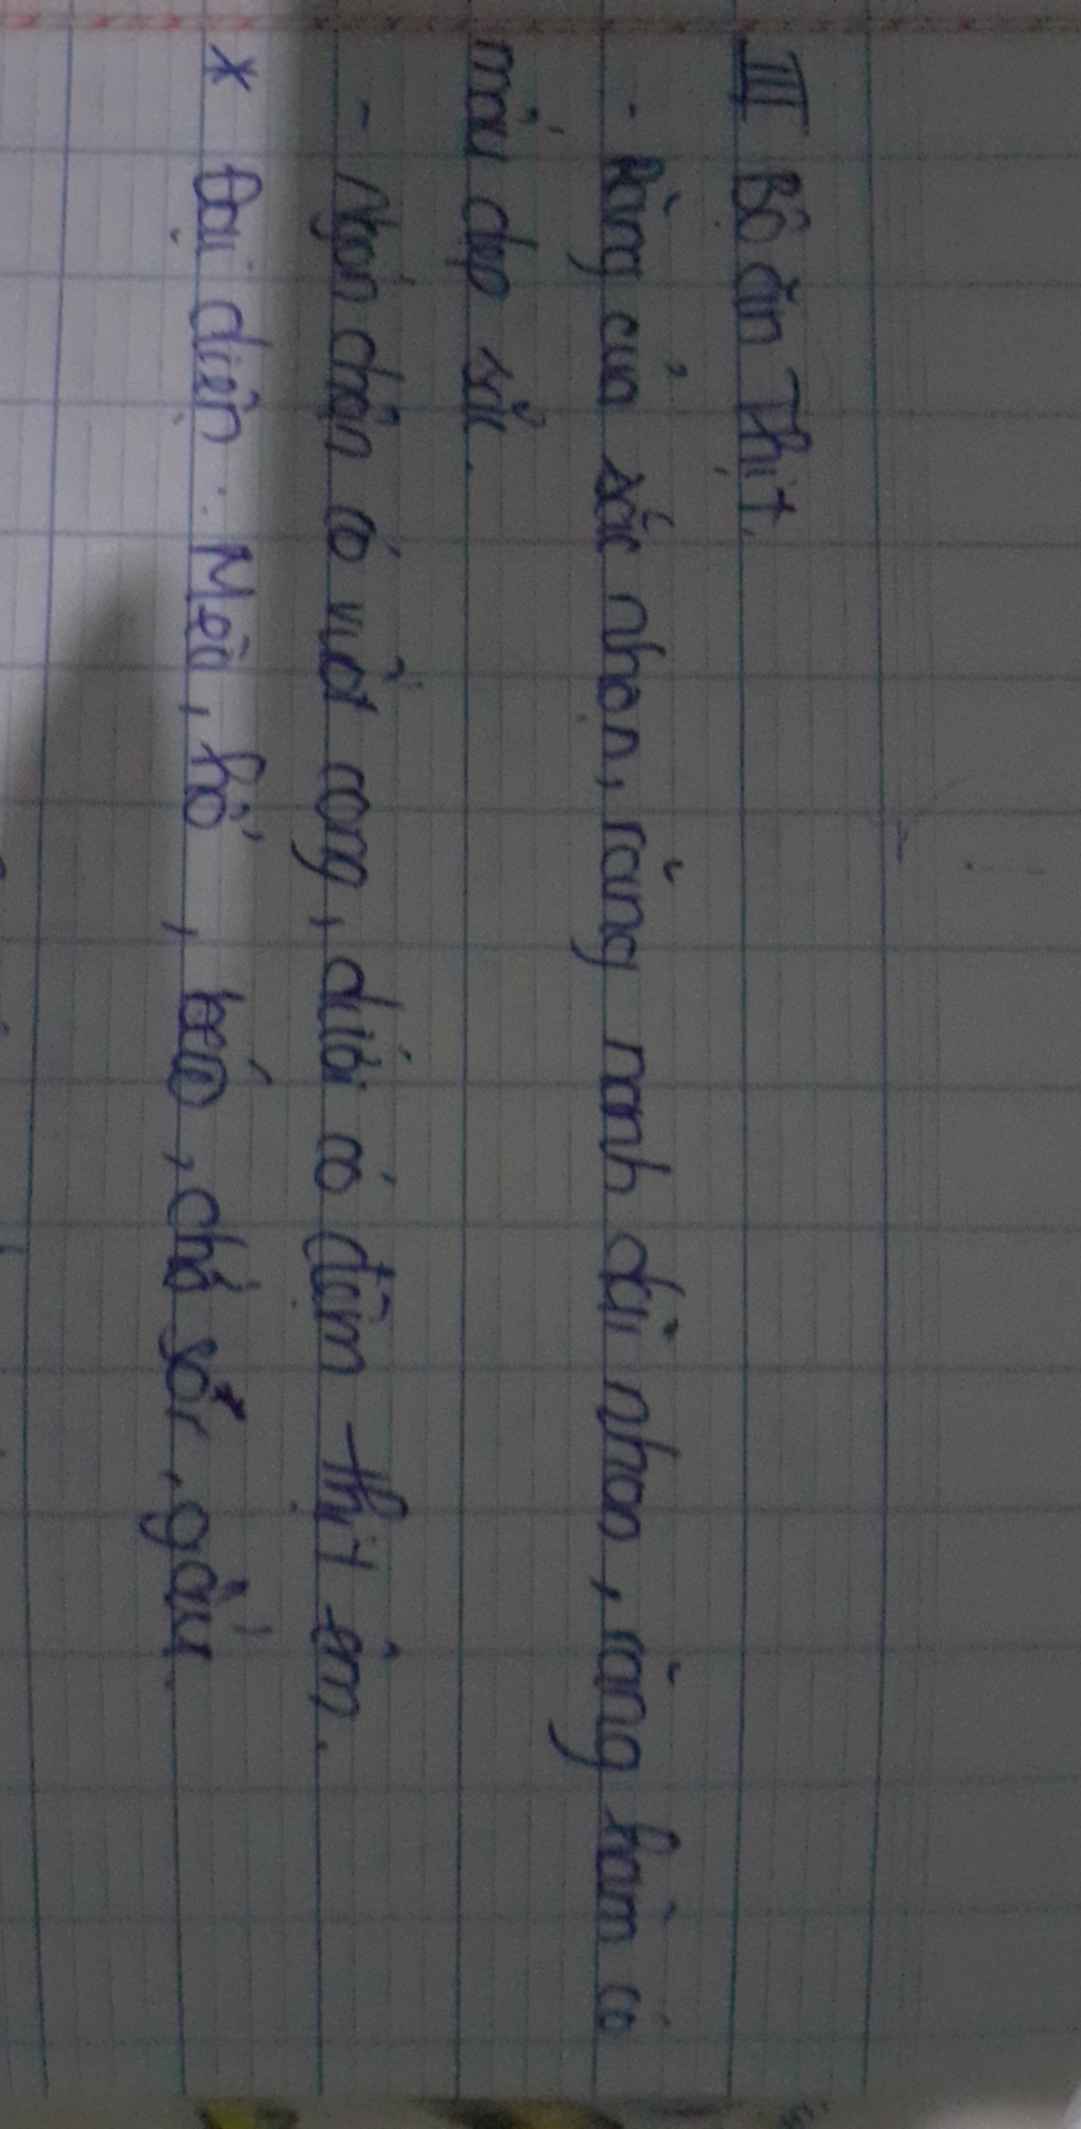 III Bộ ăn Thịt.
- Răng cửa sắc nhọn, răng nanh dài nhọn, răng hàm có
mấu dẹp sắc.
- Ngón chân có vuốt cong, dưới có đệm thịt êm.
* Đại diện: Mèo, hổ, báo, chó sói, gấu.